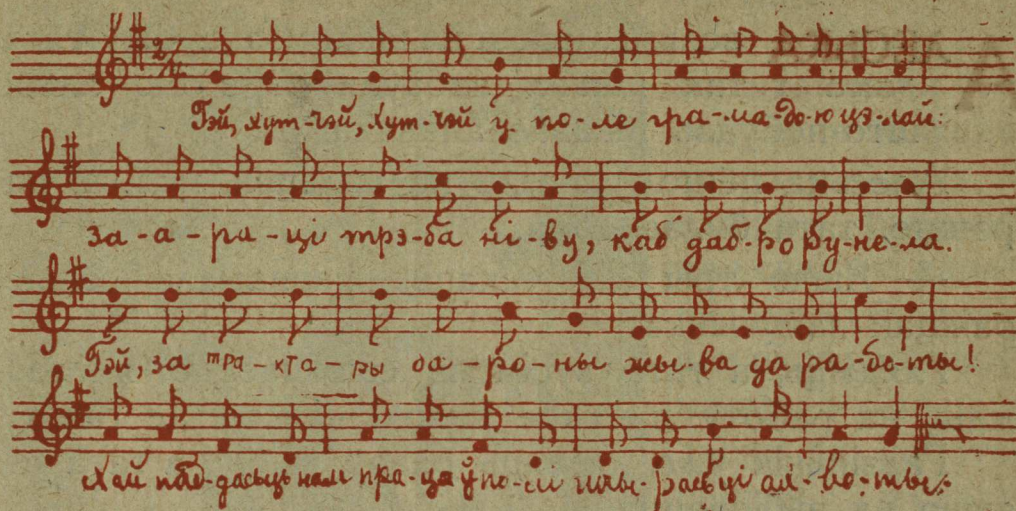 Гэй, хут-чэй, хут-чэй у по-ле гра-ма-до-ю цэ-лай:
за-а-ра-ці трэ-ба ні-ву, каб даб-ро ру-не-ла.
Гэй, за тра-кта-ры ба-ро-ны жы-ва да ра-бо-ты!
Хай пад-дасьць нам пра-ца ў по-лі шчы-расьці ах-во-ты.